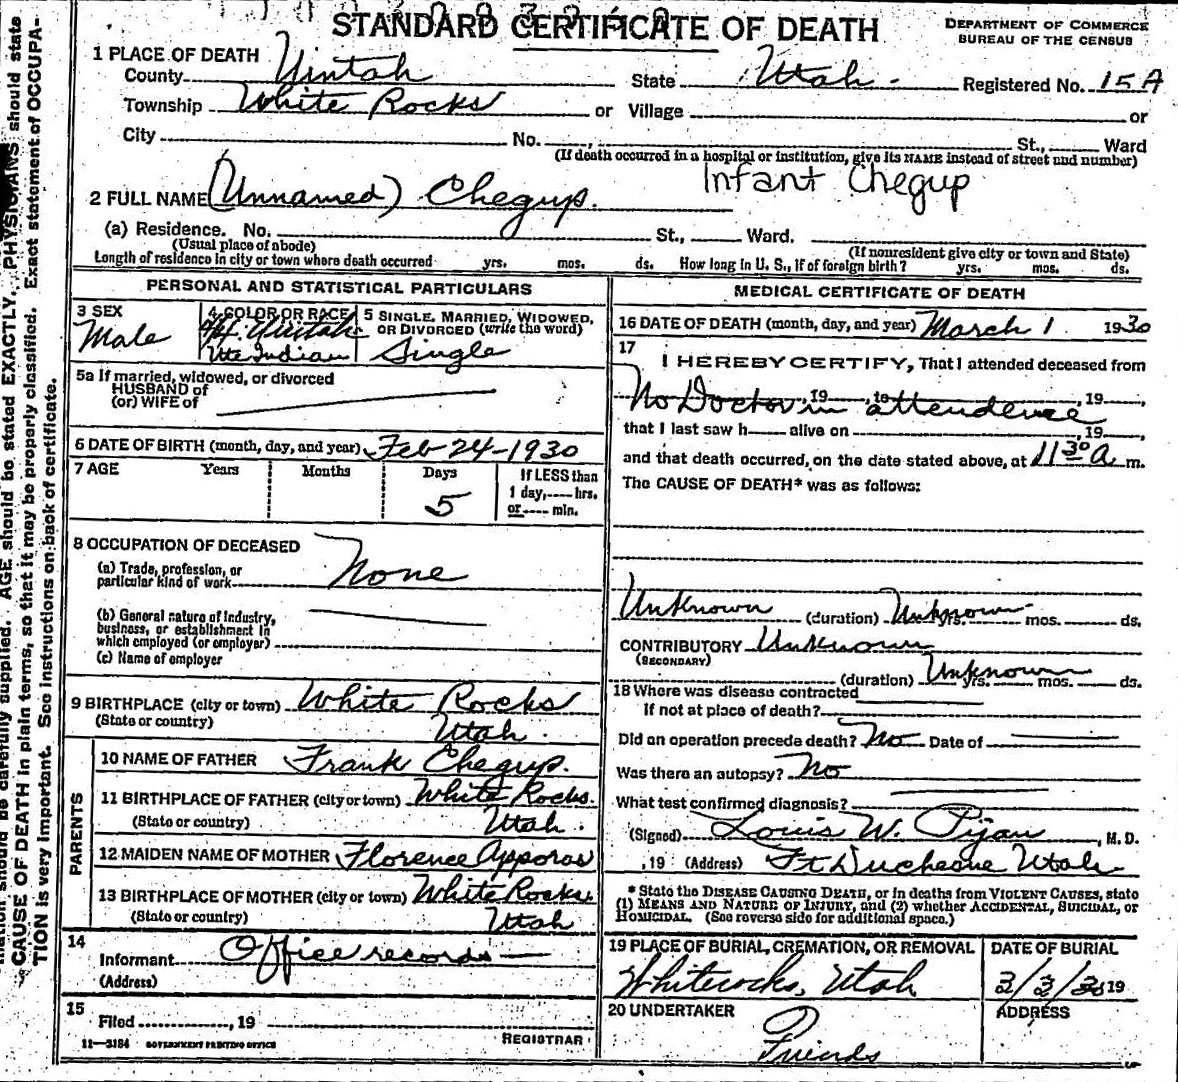 STANDARD CERTIFICATE OF DEATH
DEPARTMENT OF COMMERCE
BUREAU OF THE CENSUS
1 PLACE OF DEATH
County Uintah State Utah Registered No. 15 A
Township White Rocks or Village or
City No. St., Ward
(If death occurred in a hospital or institution, give its NAME instead of street and number)
Infant Chegup
2 FULL NAME (Unnamed) Chegup.
(a) Residence. No. St., Ward.
(Usual place of abode) (If nonresident give city or town and State)
Length of residence in city or town where death occurred yrs. mos. ds. How long in U. S., if of foreign birth? yrs. mos. ds.
PERSONAL AND STATISTICAL PARTICULARS
3 SEX
Male
4 COLOR OR RACE
Uintah
Ute Indian
5 SINGLE, MARRIED, WIDOWED,
OR DIVORCED (write the word)
Single
5a If married, widowed, or divorced
HUSBAND of
(or) WIFE of
6 DATE OF BIRTH (month, day, and year) Feb 24-1930
7 AGE Years Months Days If LESS than
5 1 day, hrs.
or min.
8 OCCUPATION OF DECEASED
(a) Trade, profession, or
particular kind of work None
(b) General nature of industry,
business, or establishment in
which employed (or employer)
(c) Name of employer
9 BIRTHPLACE (city or town) White Rocks
(State or country) Utah.
PARENTS
10 NAME OF FATHER Frank Chegup.
11 BIRTHPLACE OF FATHER (city or town) White Rocks.
(State or country) Utah.
12 MAIDEN NAME OF MOTHER Florence Apporos
13 BIRTHPLACE OF MOTHER (city or town) White Rocks
(State or country) Utah
14
Informant Office records
(Address)
15
Filed , 19
REGISTRAR
11—3184 GOVERNMENT PRINTING OFFICE
MEDICAL CERTIFICATE OF DEATH
16 DATE OF DEATH (month, day, and year) March 1 1930
17
I HEREBY CERTIFY, That I attended deceased from
, 19 , to , 19 ,
No Doctor in attendence
that I last saw h alive on , 19 ,
and that death occurred, on the date stated above, at 11 30 A m.
The CAUSE OF DEATH* was as follows:
Unknown (duration) Unknown yrs. mos. ds.
CONTRIBUTORY Unknown
(SECONDARY)
(duration) Unknown yrs. mos. ds.
18 Where was disease contracted
If not at place of death?
Did an operation precede death? No Date of
Was there an autopsy? No
What test confirmed diagnosis?
(Signed) Louis W. Pijan, M. D.
, 19 (Address) Ft Duchesne Utah
* State the DISEASE CAUSING DEATH, or in deaths from VIOLENT CAUSES, state
(1) MEANS AND NATURE OF INJURY, and (2) whether ACCIDENTAL, SUICIDAL, or
HOMICIDAL. (See reverse side for additional space.)
19 PLACE OF BURIAL, CREMATION, OR REMOVAL
Whiterocks, Utah
DATE OF BURIAL
3/2/30 19
20 UNDERTAKER
Friends
ADDRESS
should be carefully supplied. AGE should be stated EXACTLY. PHYSICIANS should state
CAUSE OF DEATH in plain terms, so that it may be properly classified. Exact statement of OCCUPA-
TION is very important. See instructions on back of certificate.